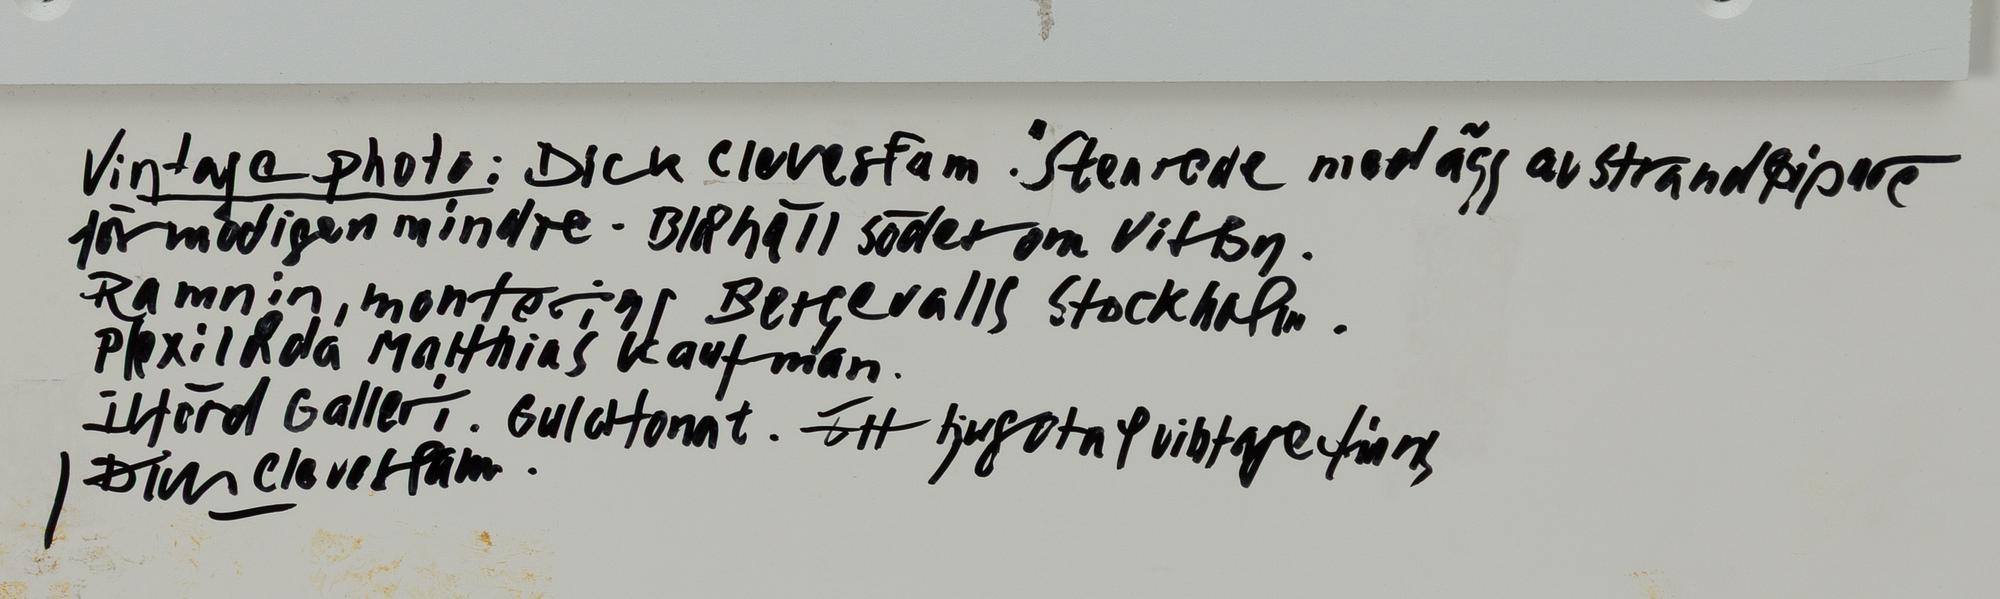 Vintage photo: Dick Clevestam. "Stenrede med ägg av strandpipare
förmodigen mindre - Blåhäll söder om VitBy.
Ramnin, montering Bergevalls Stockholm.
Plexilåda Matthias Kaufman.
Ilford Galleri. Guldtonat. Ett tjugotal vintage finns
Dick Clevestam.